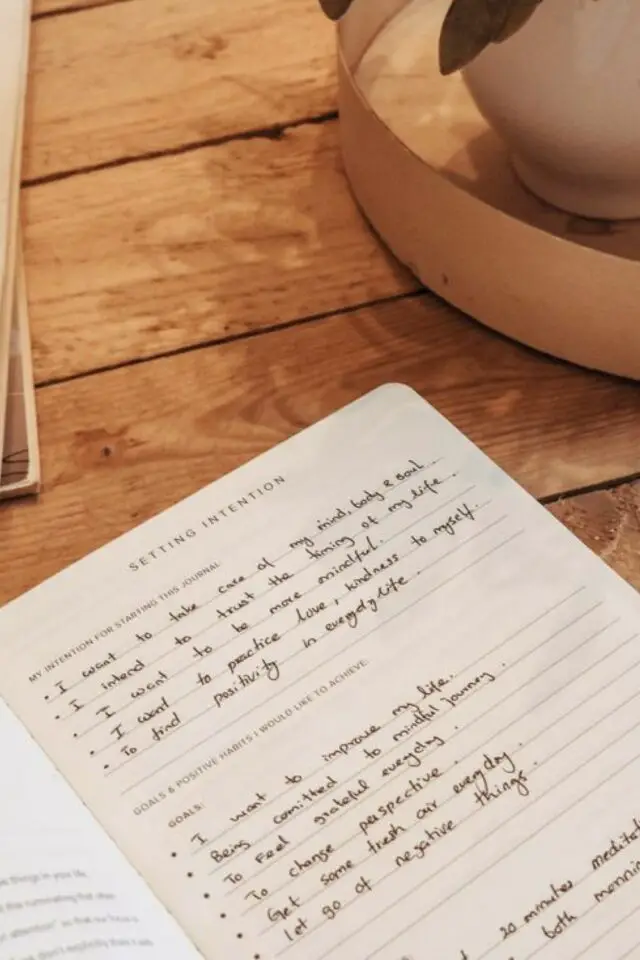 SETTING INTENTION
MY INTENTION FOR STARTING THIS JOURNAL
• I want to take care of my mind, body & soul
• I intend to trust the timing of my life.
• I want to be more mindful.
• I want to practice love, kindness to myself.
• To find positivity in everyday life.
GOALS & POSITIVE HABITS I WOULD LIKE TO ACHIEVE:
GOALS:
• I want to improve my life.
• Being comitted to mindful journey.
• To Feel grateful everyday.
• To change perspective.
• Get some fresh air everyday.
• let go of negative things.
20 minutes
both
things in your life